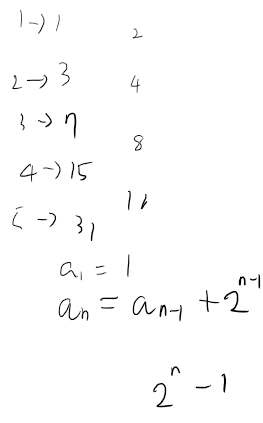 1 → 1
2
2 → 3
4
3 → 7
8
4 → 15
16
5 → 31
a₁ = 1
aₙ = aₙ₋₁ + 2ⁿ⁻¹
2ⁿ - 1